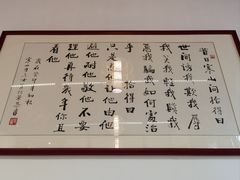 昔日寒山问拾得曰
世间谤我欺我辱
我笑我轻我贱我
恶我骗我如何处治
乎 拾得曰
只是忍他让他由他
避他耐他敬他不要
理他再待几年你且
看他